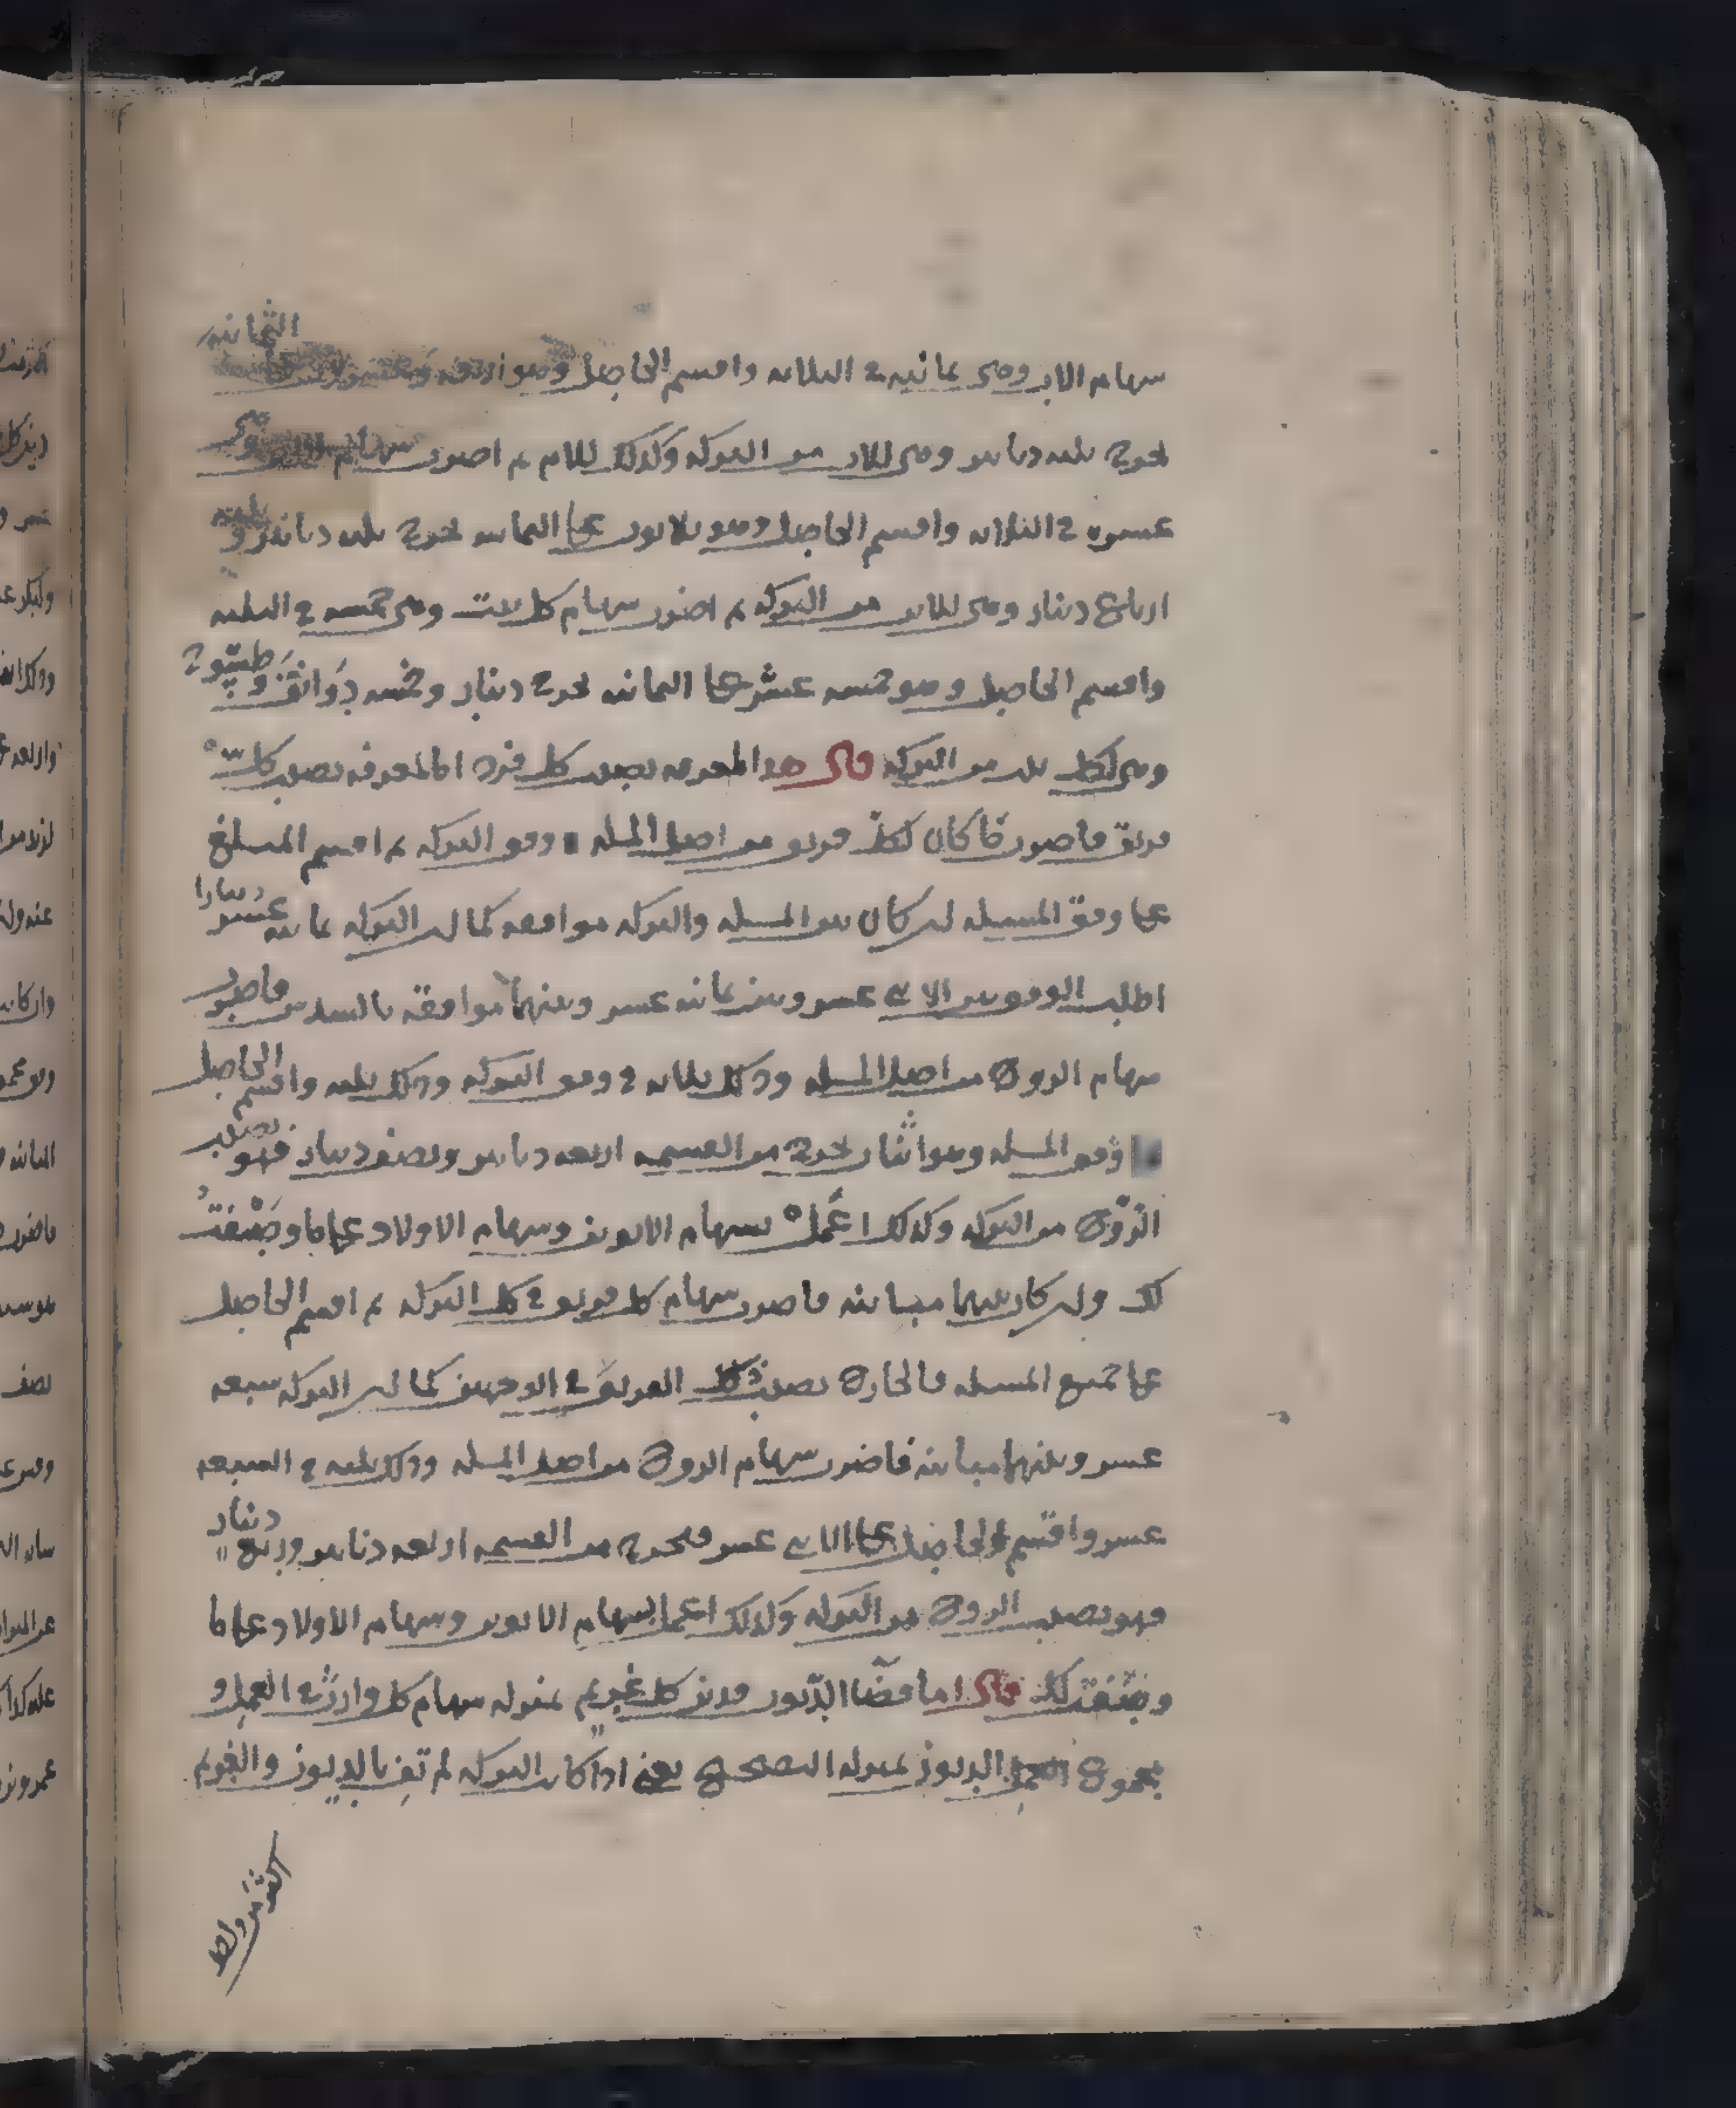 سهام الاب وهى ثمانيه في الثلاثه واقسم الحاصل وهو اربعه وعشرون على الثمانيه
يخرج ثلثه دنانير وهى للاب من التركه وكذلك للام ثم اضرب سهام الابن وهى
عشره في الثلاثه واقسم الحاصل وهو ثلاثون على الثمانيه يخرج ثلثه دنانير وثلثه
ارباع دينار وهى للابن من التركه ثم اضرب سهام كل بنت وهى خمسه في الثلثه
واقسم الحاصل وهو خمسه عشر على الثمانيه يخرج دينار وخمسه دوانق وطسّوج
وهى لكل بنت من التركه قال هذا لمعرفه نصيب كل فرد اما لمعرفه نصيب كل
فريق فاضرب ما كان لكل فريق من اصل المسله في وفق التركه ثم اقسم المبلغ
على وفق المسئله ان كان بين المسله والتركه موافقه كما ان التركه ثمانيه عشر دينارا
اطلب الوفق بين الاثنى عشر وبين ثمانيه عشر وبينهما موافقه بالسدس فاضرب
سهام الزوج من اصل المسله وذلك ثلاثه في وفق التركه وذلك ثلثه واقسم الحاصل
على وفق المسله وهو اثنان يخرج من القسمه اربعه دنانير ونصف دينار فهو نصيب
الزّوج من التركه وكذلك اعمل بسهام الابوين وسهام الاولاد على ما وصّفتُ
لك وان كان بينهما مباينه فاضرب سهام كل فريق في كل التركه ثم اقسم الحاصل
على جميع المسله فالخارج نصيب ذلك الفريق في الوجهين كما ان التركه سبعه
عشر وبينهما مباينه فاضرب سهام الزوج من اصل المسله وذلك ثلثه في السبعه
عشر واقسم الحاصل على الاثنى عشر فيخرج من القسمه اربعه دنانير وربع دينار
فهو نصيب الزوج من التركه وكذلك اعمل بسهام الابوين وسهام الاولاد على ما
وصّفتُ لك قال اما قضاء الدّيون فدين كل غريم بمنزله سهام كل وارث في العمل و
مجموع الديون بمنزله التصحيح يعنى اذا كان التركه لم تفِ بالديون والغريم